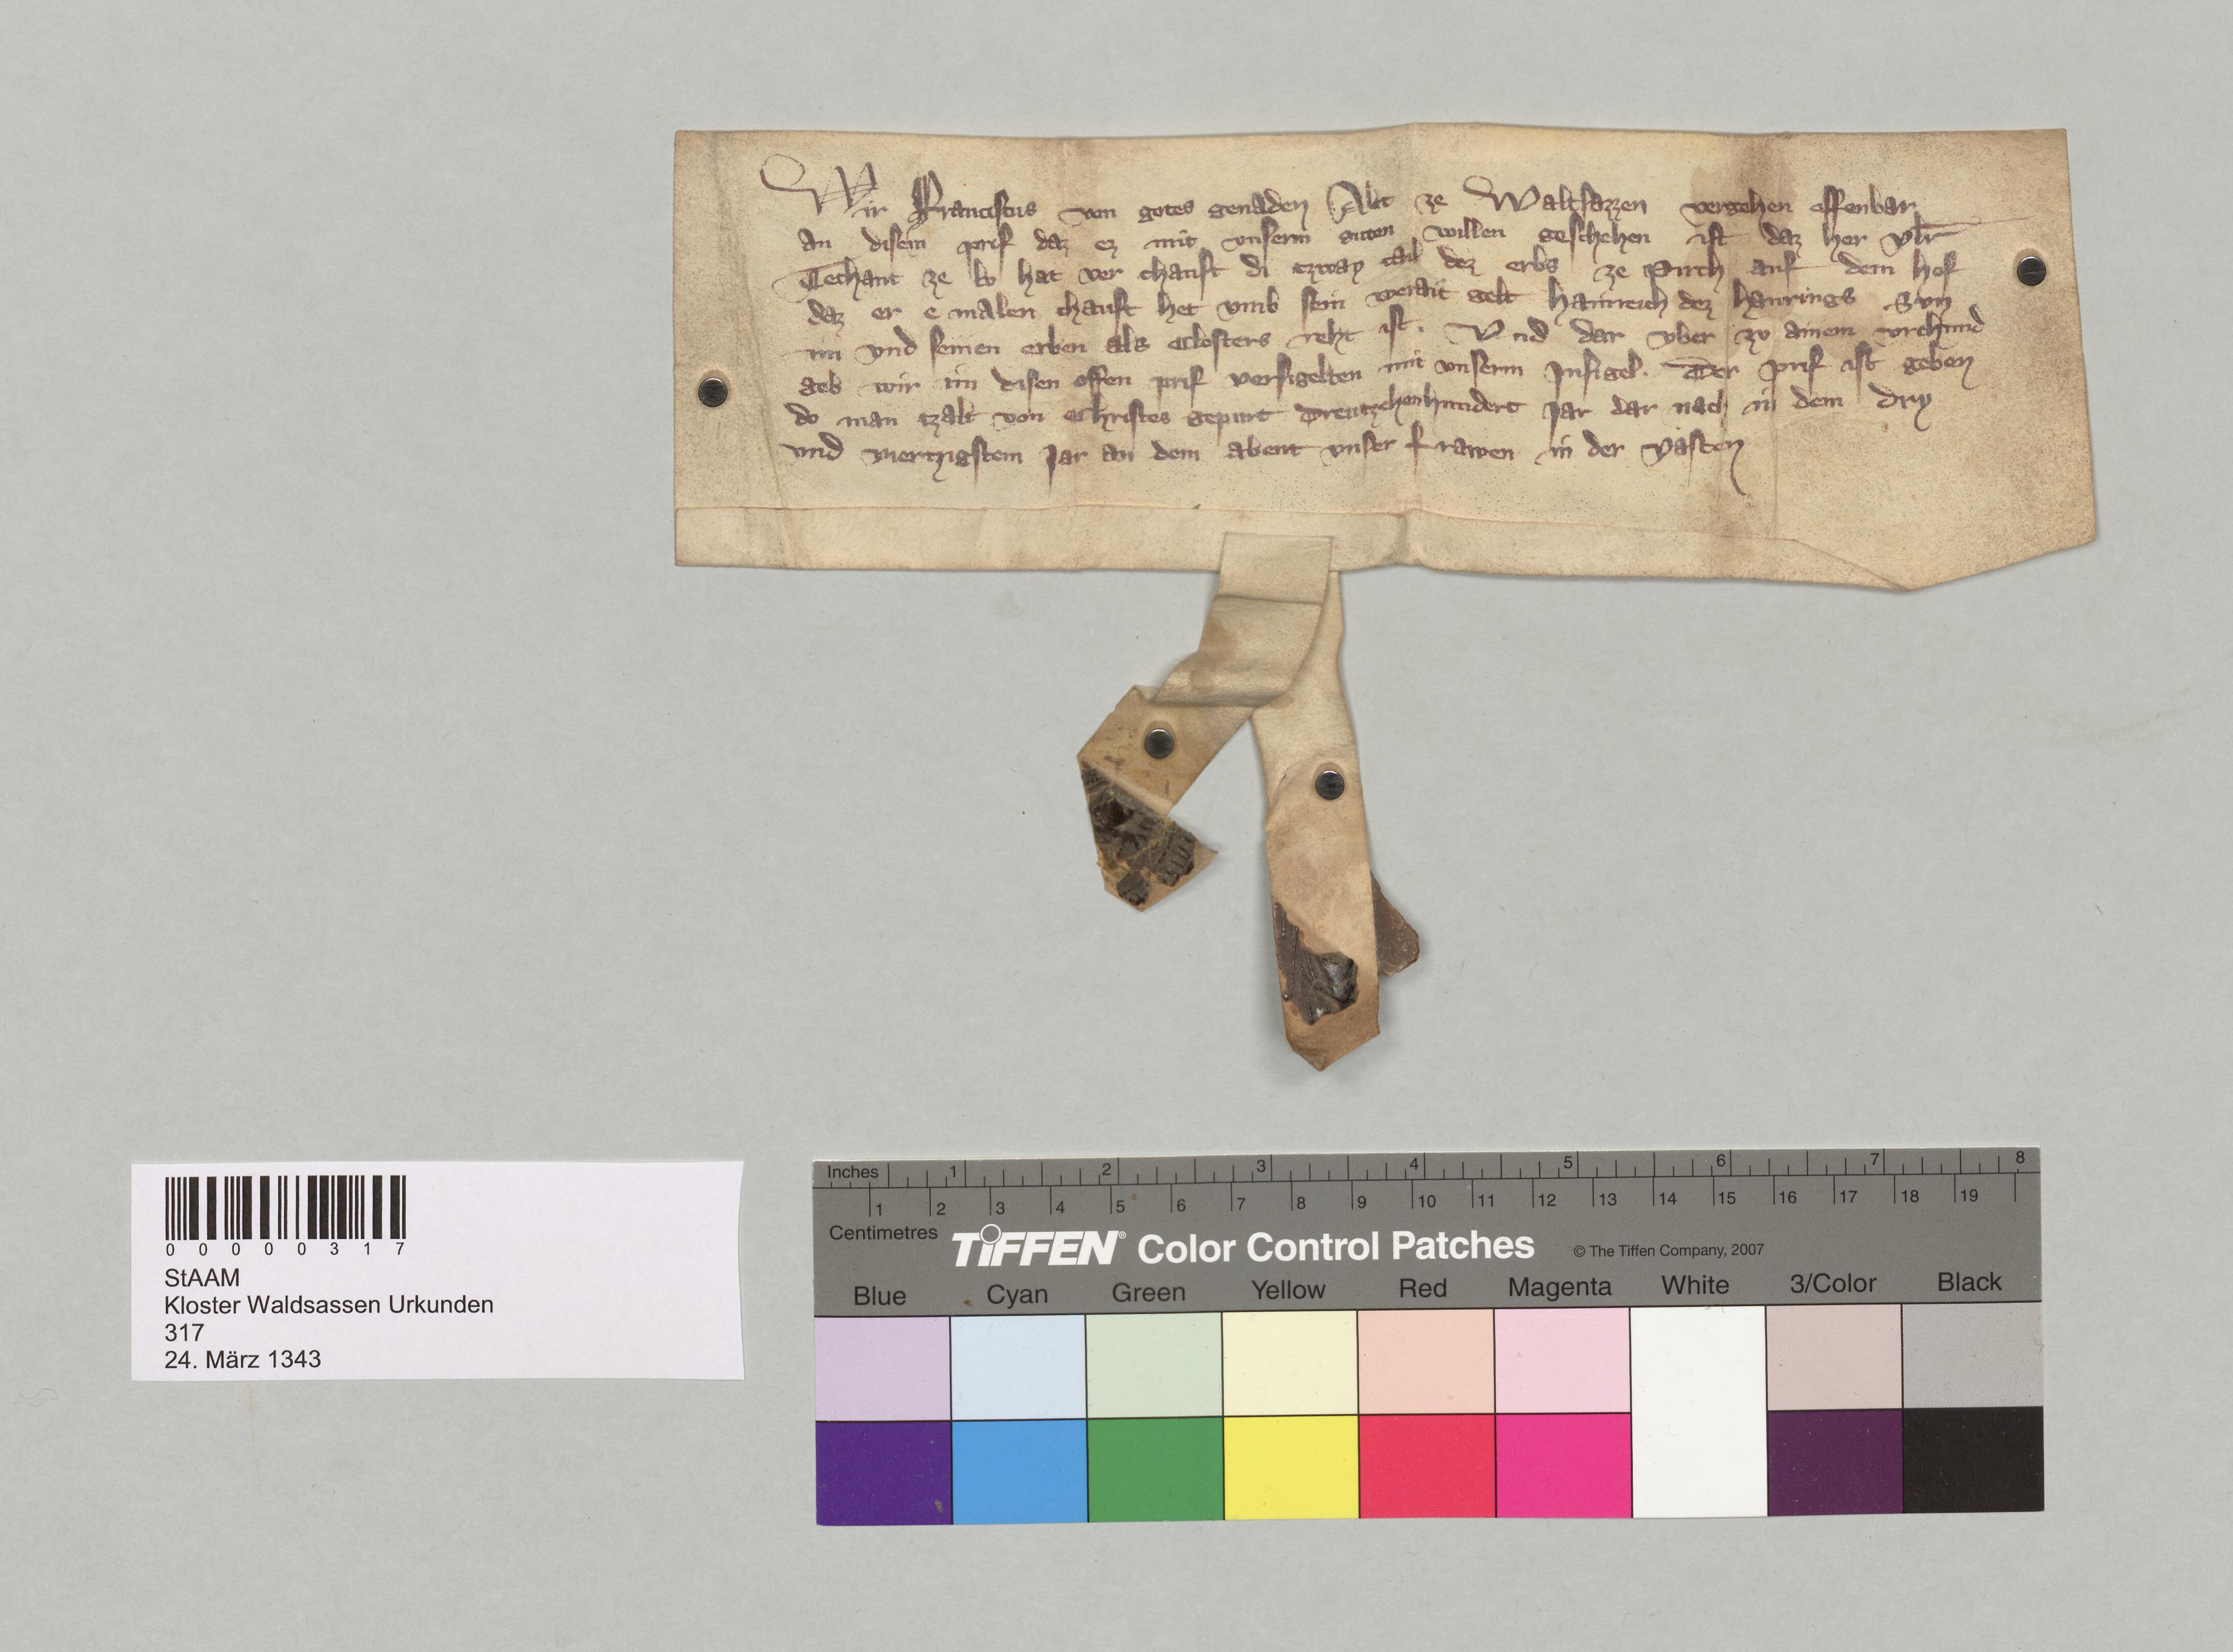 Wir Franciscus von gotes genaden Abt ze Waltsazzen vergehen offenbar
an disem prif daz ez mit vnserm guten willen geschehen ist daz her Vlr
Techant ze hat ver chauft di tzway tail dez erbs ze Pirch auf dem hof
daz er e malen chauft het vmb sein gelt Hainreich dez Hanrings Svn
im vnd seinen erben als Closters reht ist. Vnd dar vber zv ainem vrchund
geb wir im disen offen prif versigelten mit vnserm Jnsigel. Der prif ist geben
do man tzalt von Christes gepurt Dreutzehenhundert Jar dar nach in dem dry
vnd viertzigstem Jar an dem abent vnser frawen in der Vasten
0 0 0 0 0 3 1 7
StAAM
Kloster Waldsassen Urkunden
317
24. März 1343
Inches 1 2 3 4 5 6 7 8
1 2 3 4 5 6 7 8 9 10 11 12 13 14 15 16 17 18 19
Centimetres
TIFFEN® Color Control Patches © The Tiffen Company, 2007
Blue Cyan Green Yellow Red Magenta White 3/Color Black